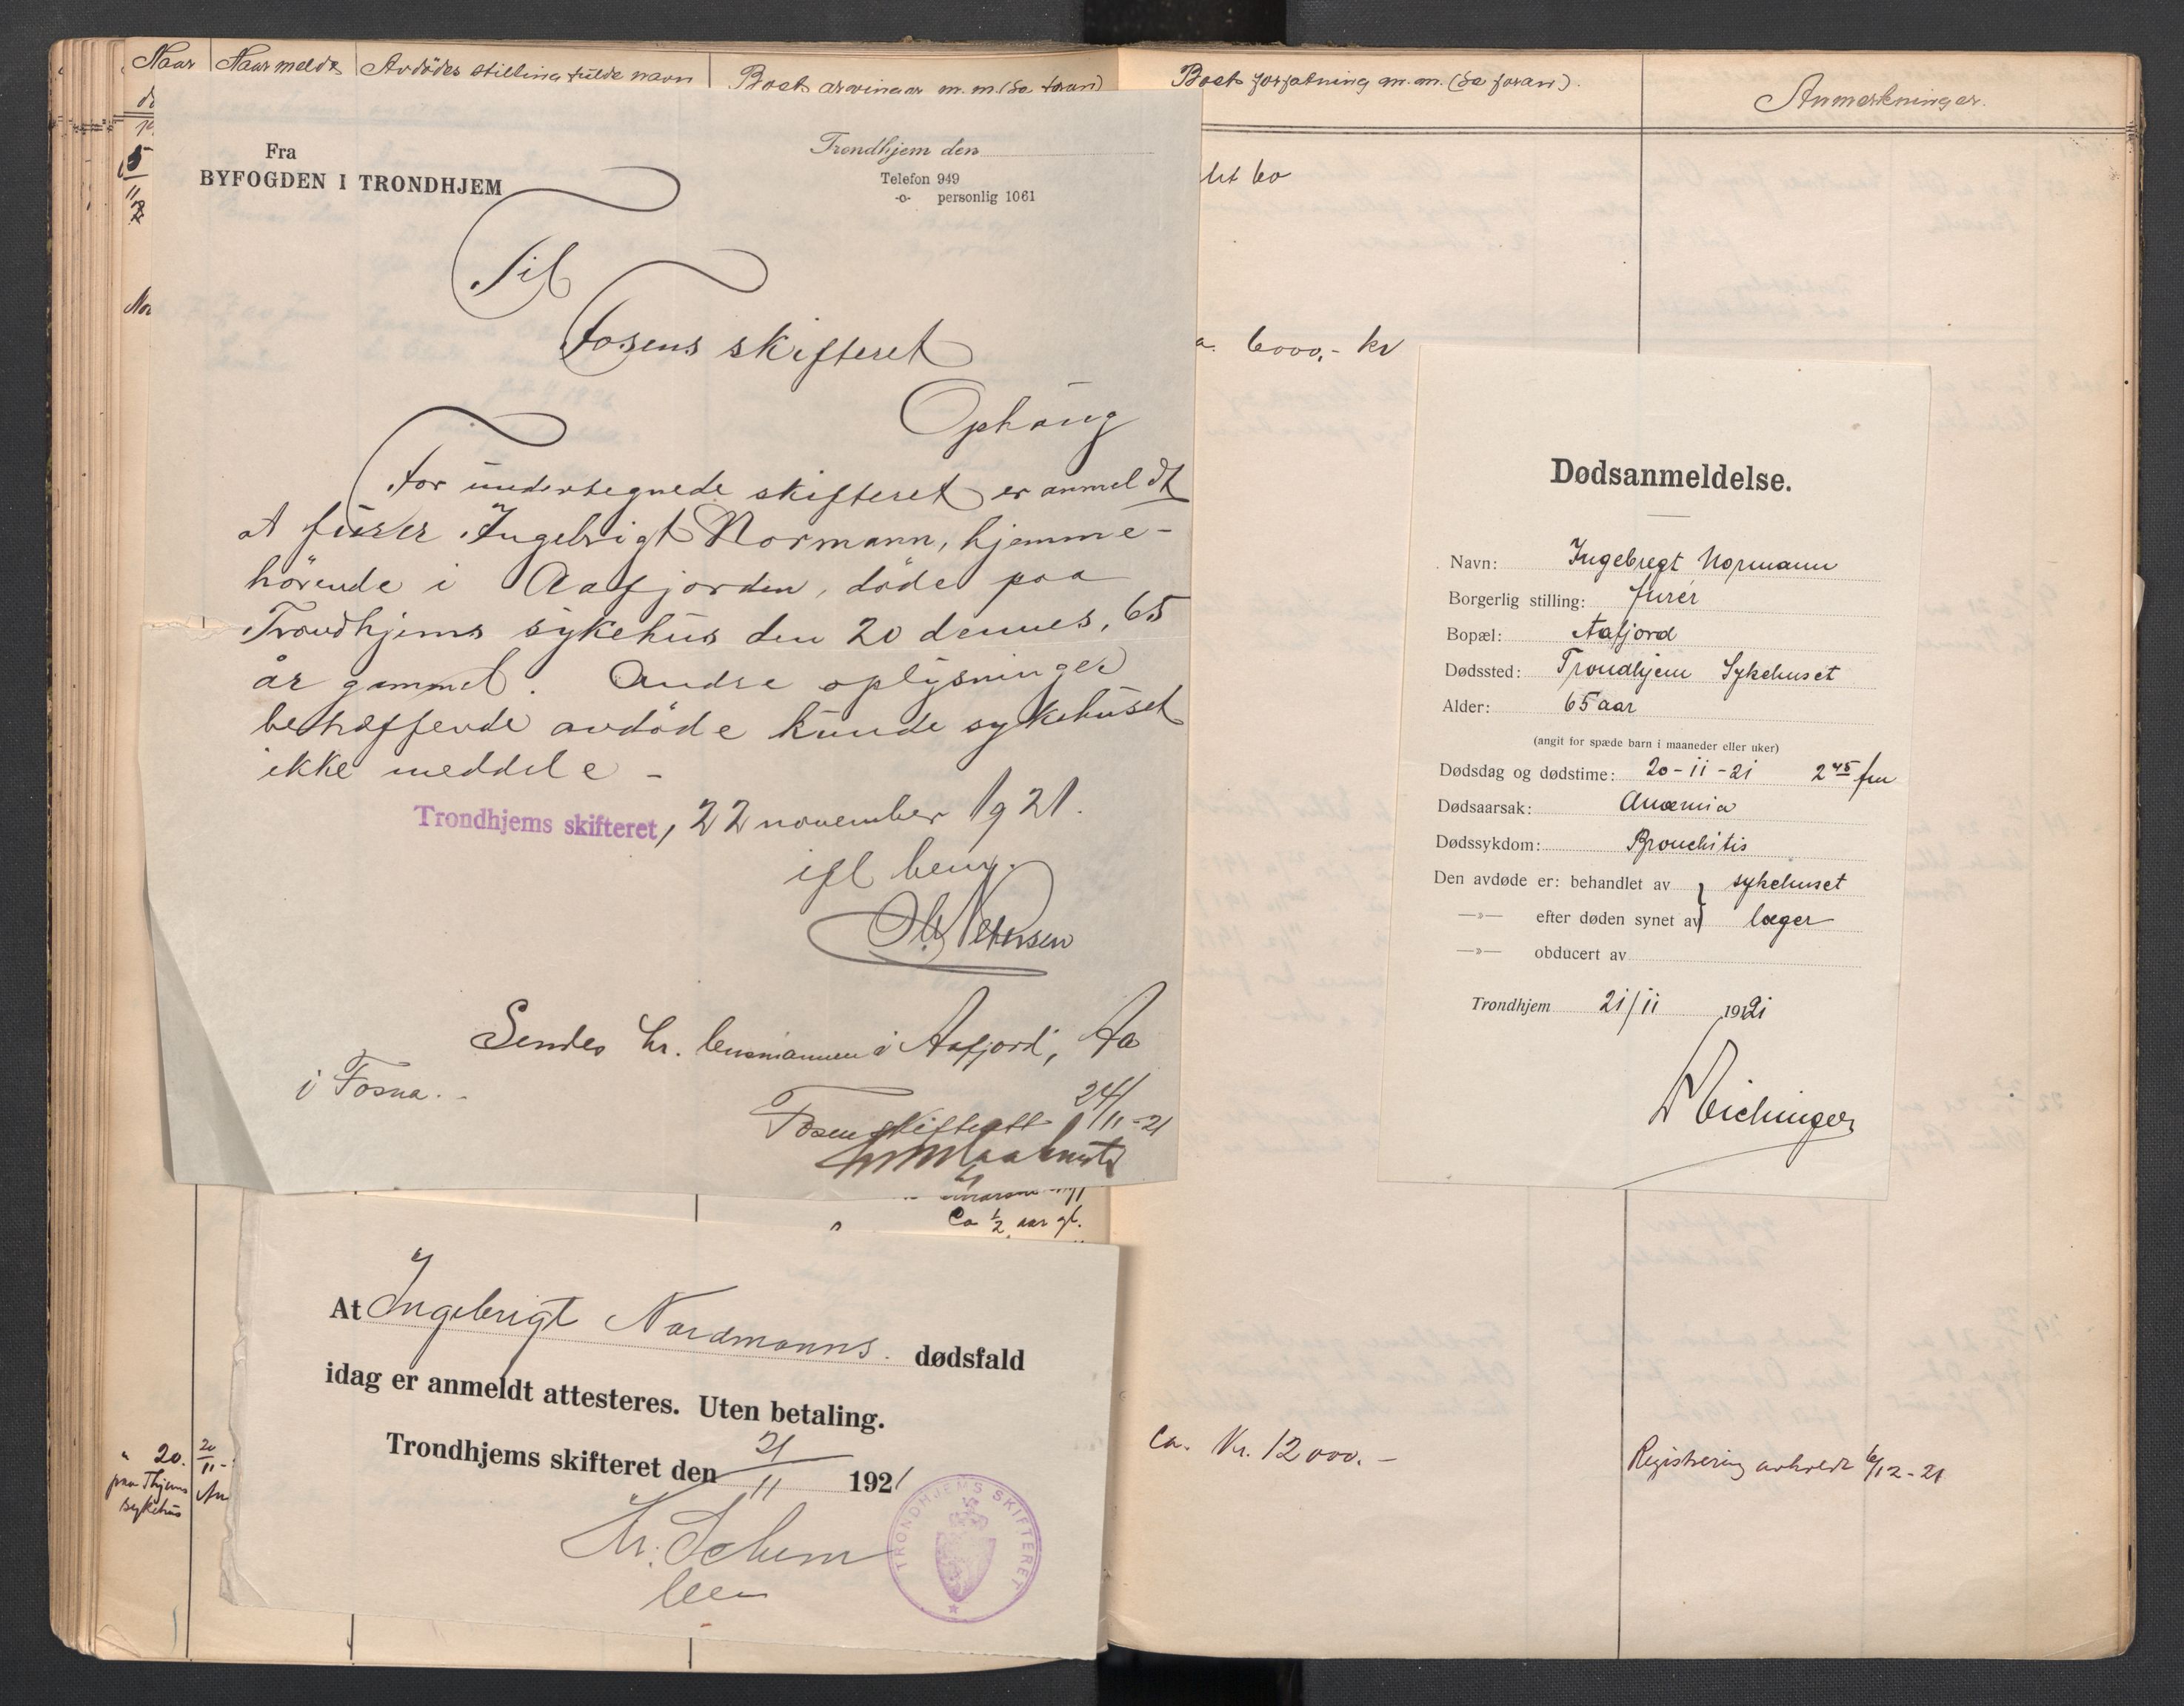 Naar Naar meldt Avdödes stilling fulde navn Boets arvinger m.m. (Se foran)
Boets forfatning m.m. (Se foran).
Anmerkninger.
Fra
BYFOGDEN I TRONDHJEM
Trondhjem den
Telefon 949
-o- personlig 1061
Til
Fosens skifteret
Ophaug
For undertegnede skifteret er anmeldt
at furer Ingebrigt Normann, hjemme-
hörende i Aafjorden, döde paa
Trondhjems sykehus den 20 dennes, 65
år gammel. Andre oplysninger
betræffende avdöde kunde sykehuset
ikke meddele -
Trondhjems skifteret, 22 november 1921.
efl bem.
Petersen
Sendes hr. lensmannen i Aafjord, Aa
i Fosna. -
Fosen skifterett 24/11-21
Ca 1/2 aar gl.
At Ingebrigt Nordmanns dødsfald
idag er anmeldt attesteres. Uten betaling.
Trondhjems skifteret den 21/11 1921
TRONDHJEMS SKIFTERET
" 20. 20/11-
paa Thjems
sykehus
6000,- kr
Dødsanmeldelse.
Navn: Ingebregt Normann
Borgerlig stilling: furér
Bopæl: Aafjord
Dødssted: Trondhjem Sykehuset
Alder: 65 aar
(angit for spæde barn i maaneder eller uker)
Dødsdag og dødstime: 20-11-21 2 45 fm
Dødsaarsak: Anæmia
Dødssykdom: Bronchitis
Den avdøde er: behandlet av } sykehuset
—»— efter døden synet av læger
—»— obducert av
Trondhjem 21/11 1921
Eichinger
Ca. Kr. 12000.-
Registrering avholdt 6/12-21